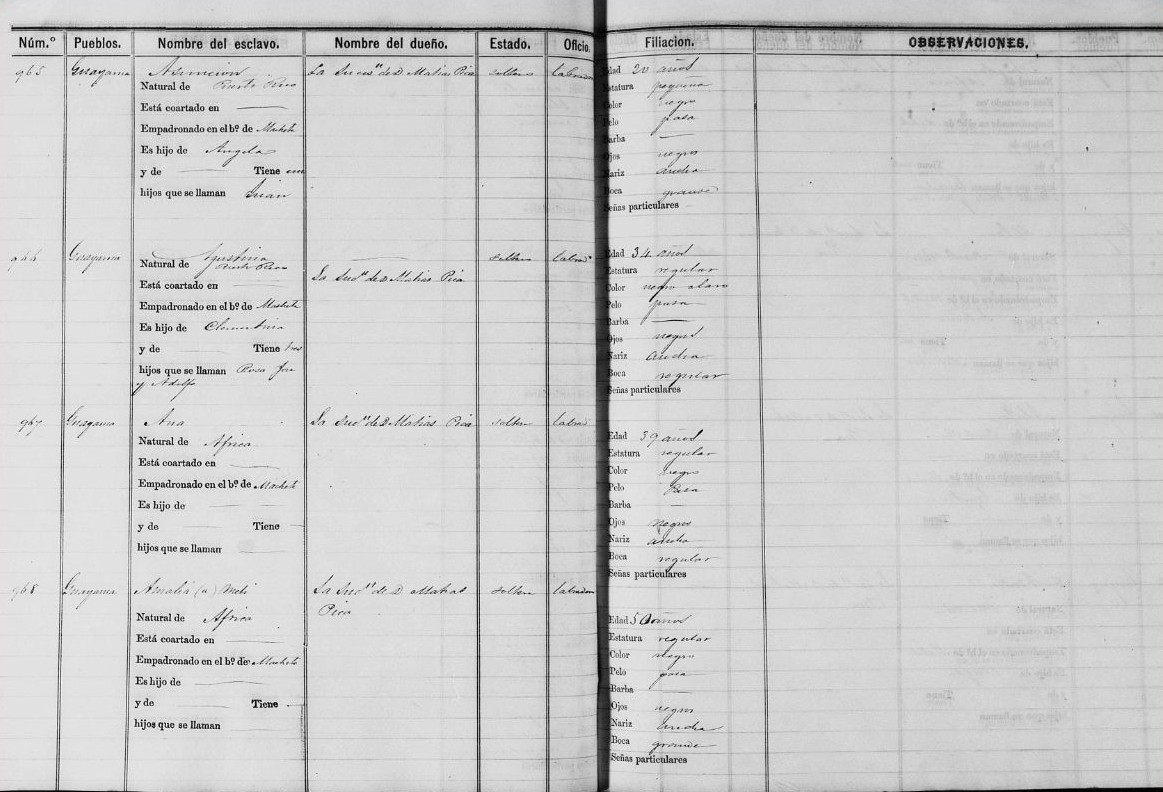 Núm.º Pueblos. Nombre del esclavo. Nombre del dueño. Estado. Oficio. Filiacion. OBSERVACIONES.
965 Guayama Asuncion La Sucon de D Matias Pica soltera labrador
Natural de Puerto Rico
Está coartado en —
Empadronado en el bº de Machete
Es hijo de Angela
y de — Tiene un
hijos que se llaman Juan
Edad 20 años
Estatura pequeña
Color negro
Pelo pasa
Barba —
Ojos negros
Nariz ancha
Boca grande
Señas particulares
966 Guayama Agustina — soltera labrador
Natural de Puerto Rico
La Sucn de D Matias Pica
Está coartado en —
Empadronado en el bº de Machete
Es hijo de Clementina
y de — Tiene tres
hijos que se llaman Rosa Jose
y Adolfo
Edad 34 años
Estatura regular
Color negro claro
Pelo pasa
Barba —
Ojos negros
Nariz ancha
Boca regular
Señas particulares
967 Guayama Ana La Sucn de D Matias Pica soltera labrador
Natural de Africa
Está coartado en —
Empadronado en el bº de Machete
Es hijo de —
y de — Tiene —
hijos que se llaman
Edad 39 años
Estatura regular
Color negro
Pelo Pasa
Barba —
Ojos negros
Nariz ancha
Boca regular
Señas particulares
968 Guayama Amalia (a) La Sucn de D Matias soltera labrador
Pica
Natural de Africa
Está coartado en —
Empadronado en el bº de Machete
Es hijo de —
y de — Tiene —
hijos que se llaman
Edad 50 años
Estatura regular
Color negro
Pelo pasa
Barba —
Ojos negros
Nariz ancha
Boca grande
Señas particulares